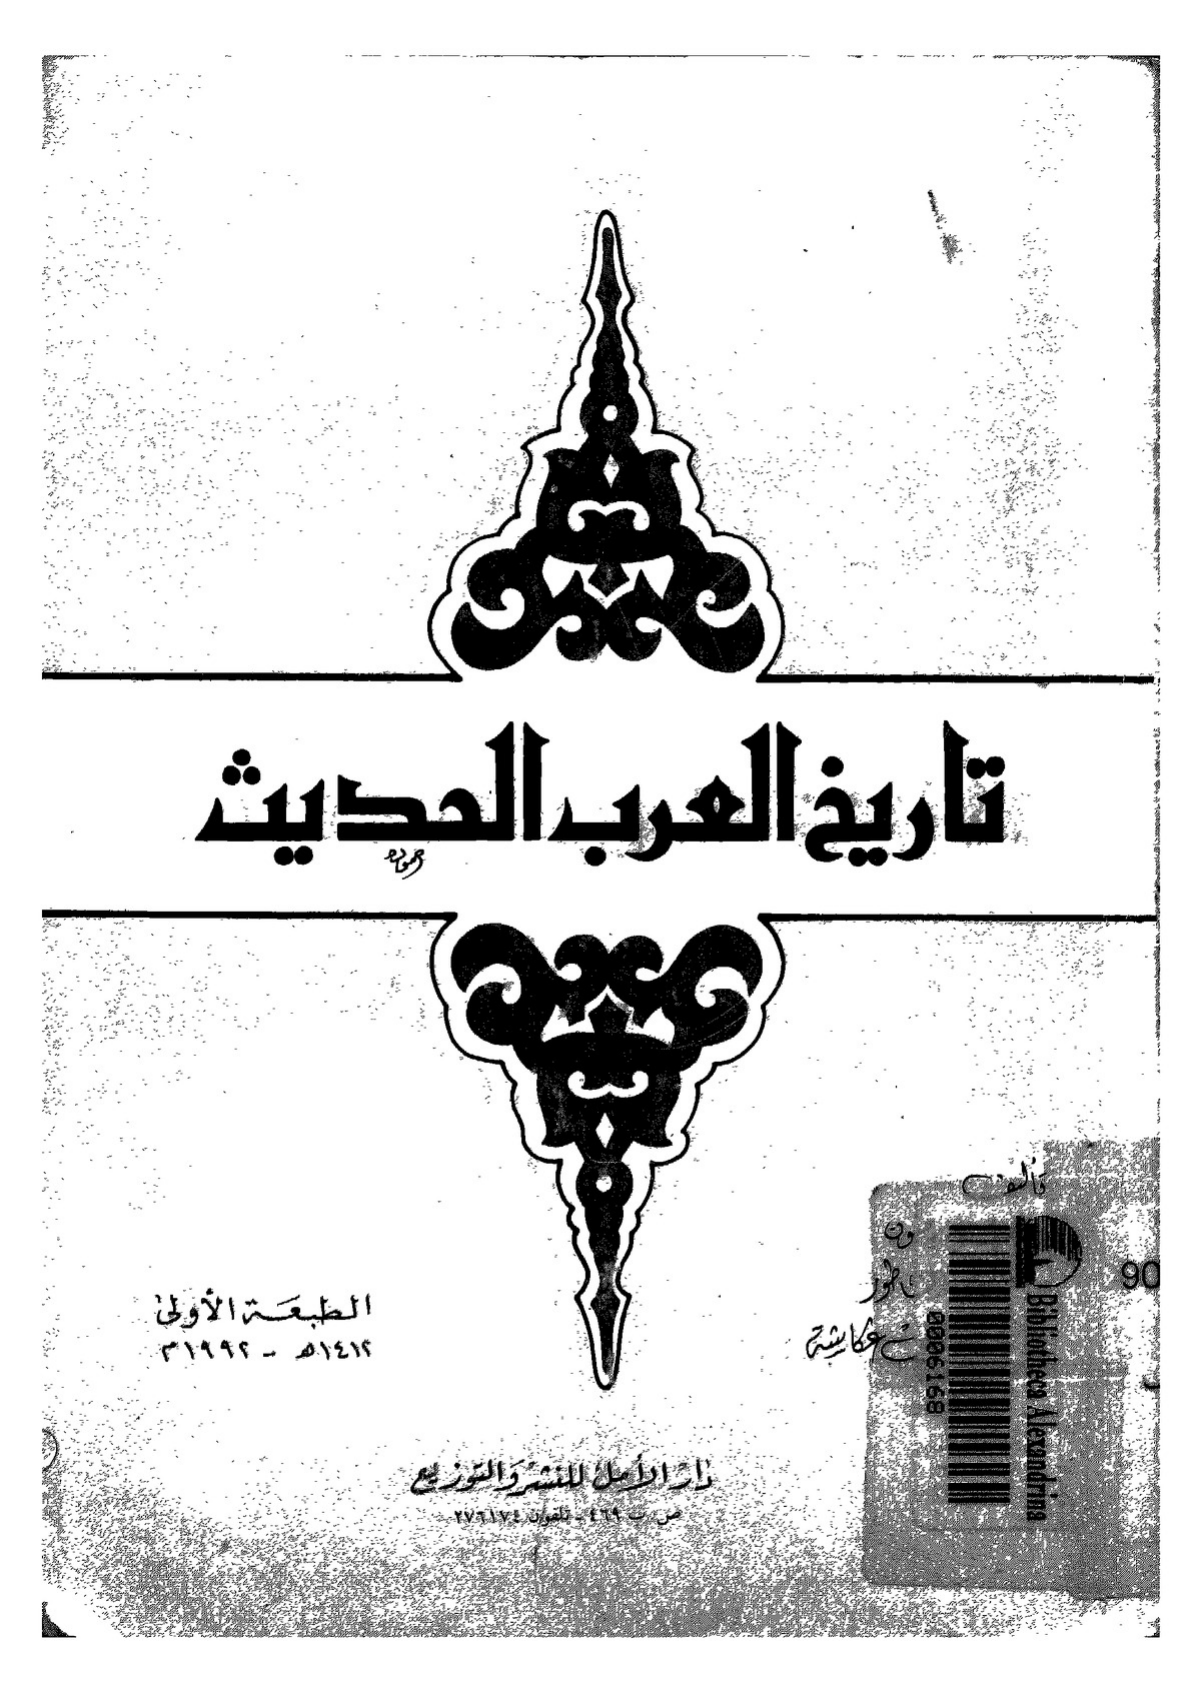 تاريخ العرب الحديث
تأليف
عكاشة
90
Bibliotheca Alexandrina
0006168
الطبعة الأولى
١٤١٢هـ - ١٩٩٢م
دار الأمل للنشر والتوزيع
ص ب ٤٦٩ - تلفون ٢٧٦١٧٤